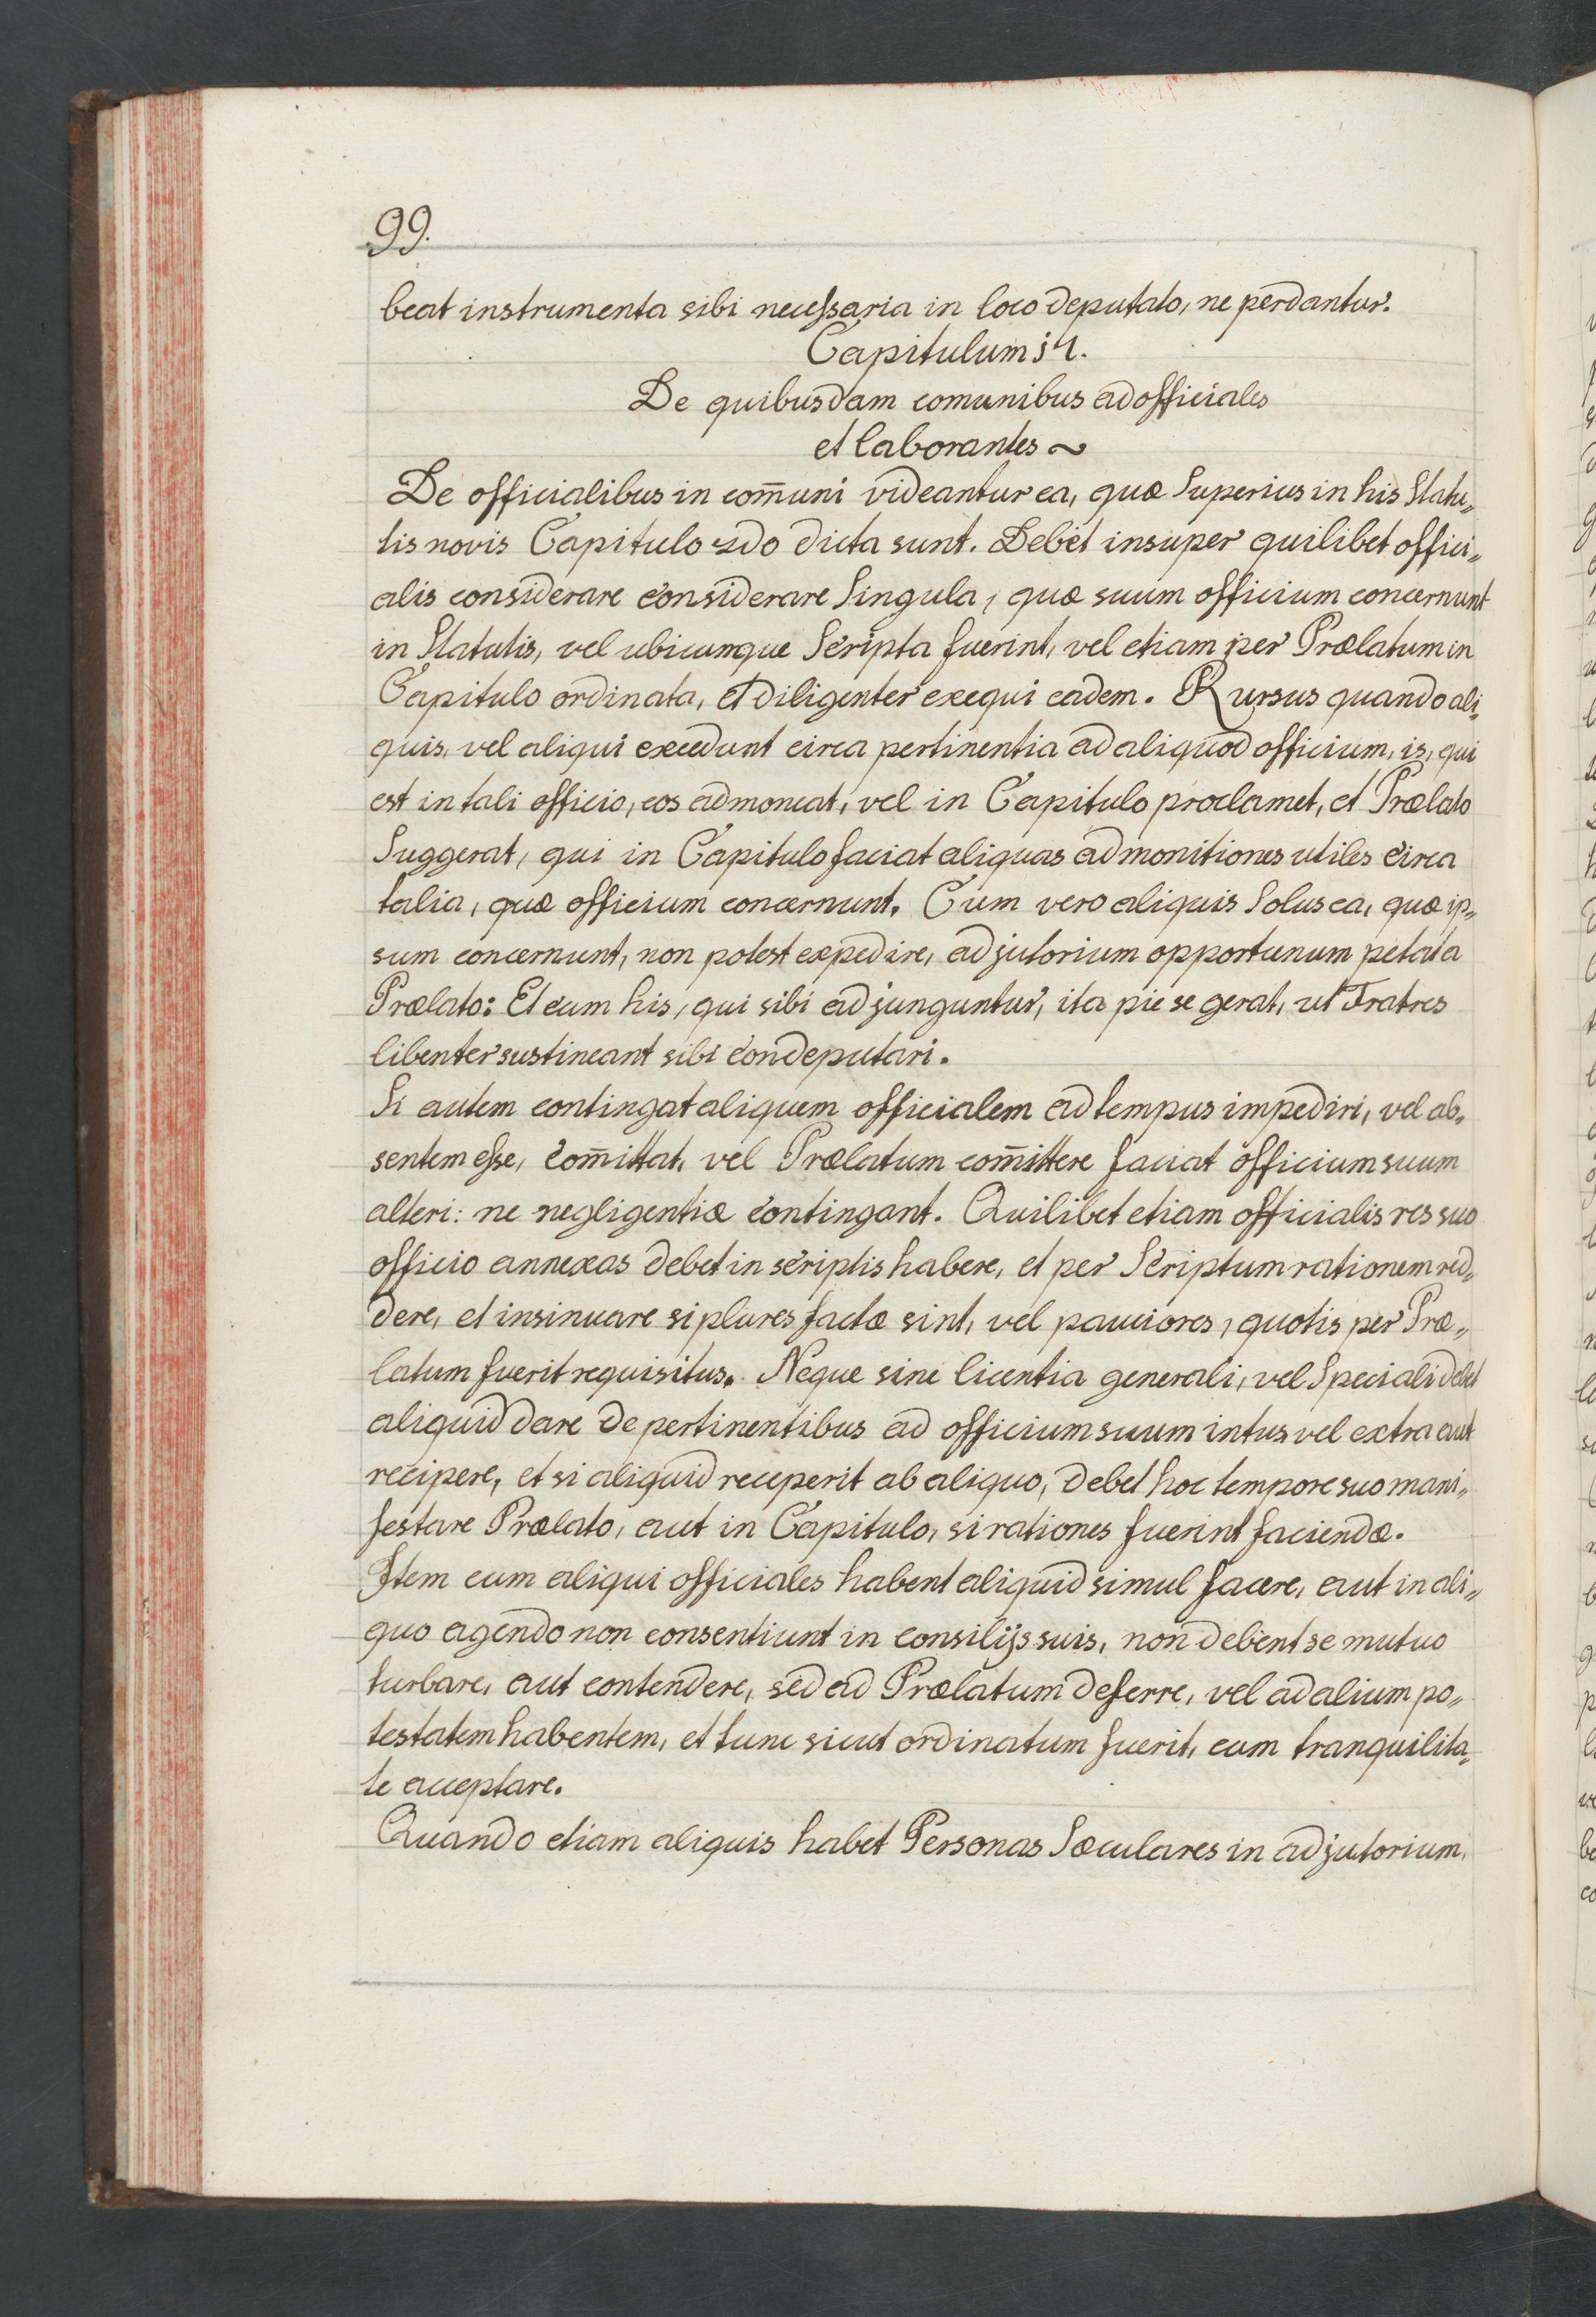 99.
beat instrumenta sibi necessaria in loco deputato, ne perdantur.
Capitulum 
De quibusdam comunibus ad officiales
et laborantes ~
De officialibus in com̃uni videantur ea, quæ Superius in his Statu„
tis novis Capitulo 2do dicta sunt. Debet insuper quilibet offici„
alis considerare considerare Singula, quæ suum officium concernunt
in Statutis, vel ubicumque Scripta fuerint, vel etiam per Prælatum in
Capitulo ordinata, et diligenter exequi eadem. Rursus quando ali„
quis, vel aliqui excedunt circa pertinentia ad aliquod officium, is, qui
est in tali officio, eos admoneat, vel in Capitulo proclamet, et Prælato
Suggerat, qui in Capitulo faciat aliquas admonitiones utiles circa
talia, quæ officium concernunt. Cum vero aliquis Solus ea, quæ ip„
sum concernunt, non potest expedire, adjutorium opportunum petat a
Prælato: Et cum his, qui sibi adjunguntur, ita pie se gerat, ut Fratres
libenter sustineant sibi condeputari.
Si autem contingat aliquem officialem ad tempus impediri, vel ab„
sentem esse, com̃ittat, vel Prælatum com̃ittere faciat officium suum
alteri: ne negligentiæ contingant. Quilibet etiam officialis res suo
officio annexas debet in scriptis habere, et per Scriptum rationem red„
dere, et insinuare si plures factæ sint, vel pauciores, quotis per Præ„
latum fuerit requisitus. Neque sine licentia generali, vel Speciali debet
aliquid dare de pertinentibus ad officium suum intus vel extra aut
recipere, et si aliquid receperit ab aliquo, debet hoc tempore suo mani„
festare Prælato, aut in Capitulo, si rationes fuerint faciendæ.
Item cum aliqui officiales habent aliquid simul facere, aut in ali„
quo agendo non consentiunt in consilijs suis, non debent se mutuo
turbare, aut contendere, sed ad Prælatum deferre, vel ad alium po„
testatem habentem, et tunc sicut ordinatum fuerit, cum tranquilita„
te acceptare.
Quando etiam aliquis habet Personas Sæculares in adjutorium,